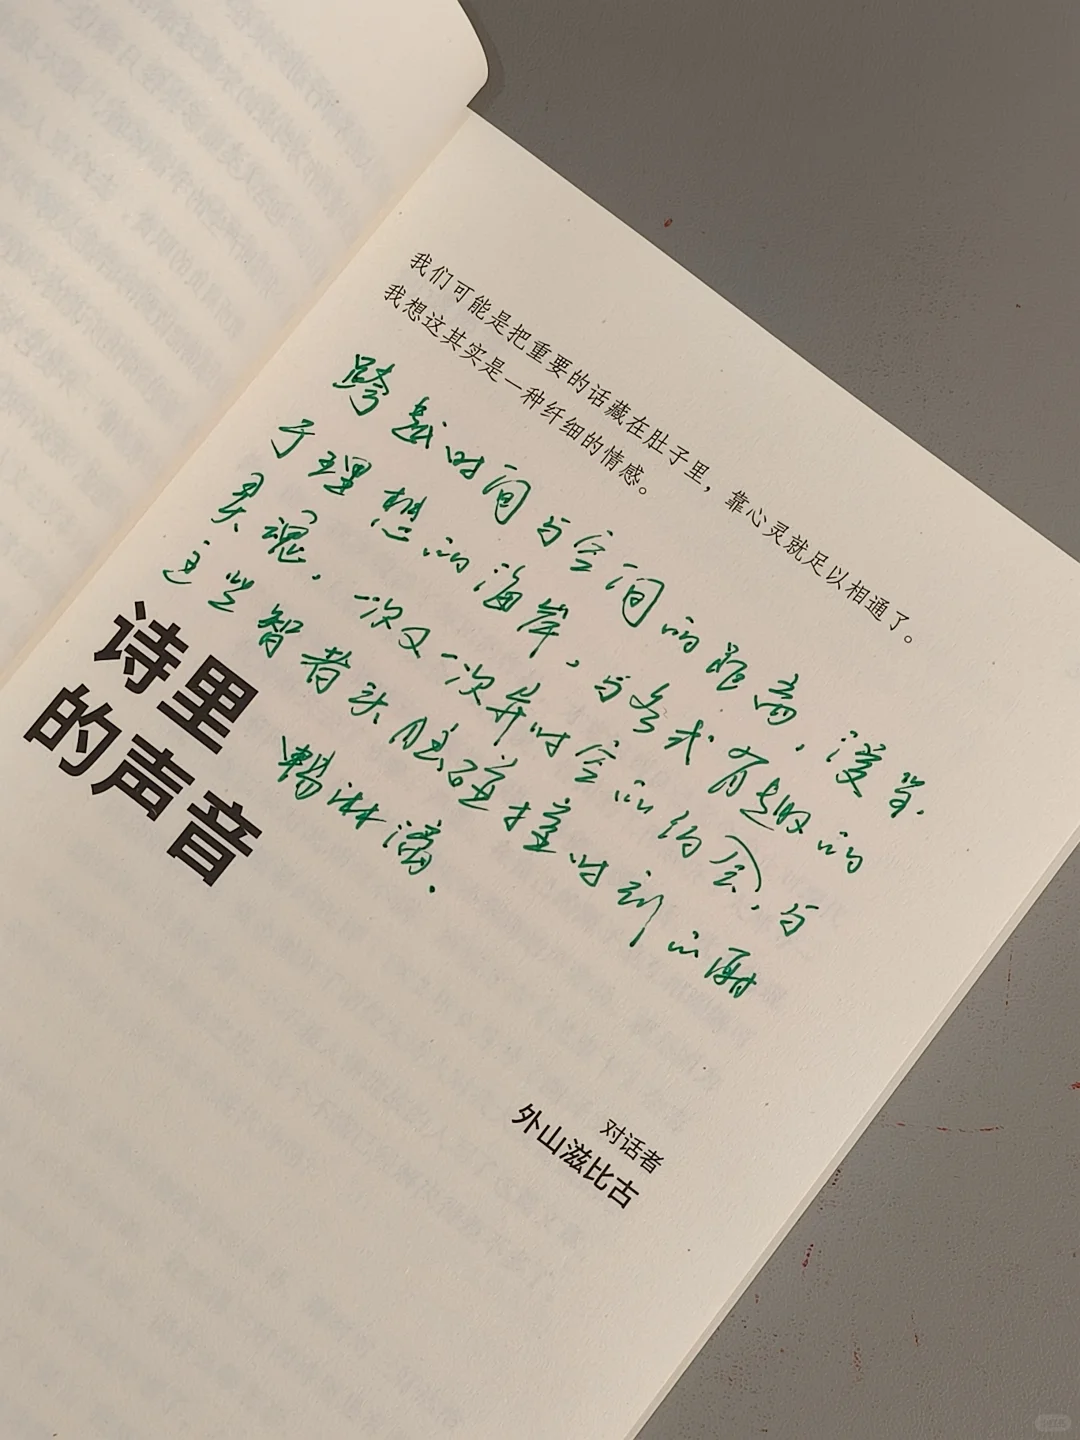 我们可能是把重要的话藏在肚子里，靠心灵就足以相通了。
我想这其实是一种纤细的情感。
跨越时间与空间的距离，漫步
于理想的海岸，与各式有趣的
灵魂，一次又一次异时空的约会，与
这些智者头脑碰撞时刻的酣
畅淋漓.
诗里
的声音
对话者
外山滋比古